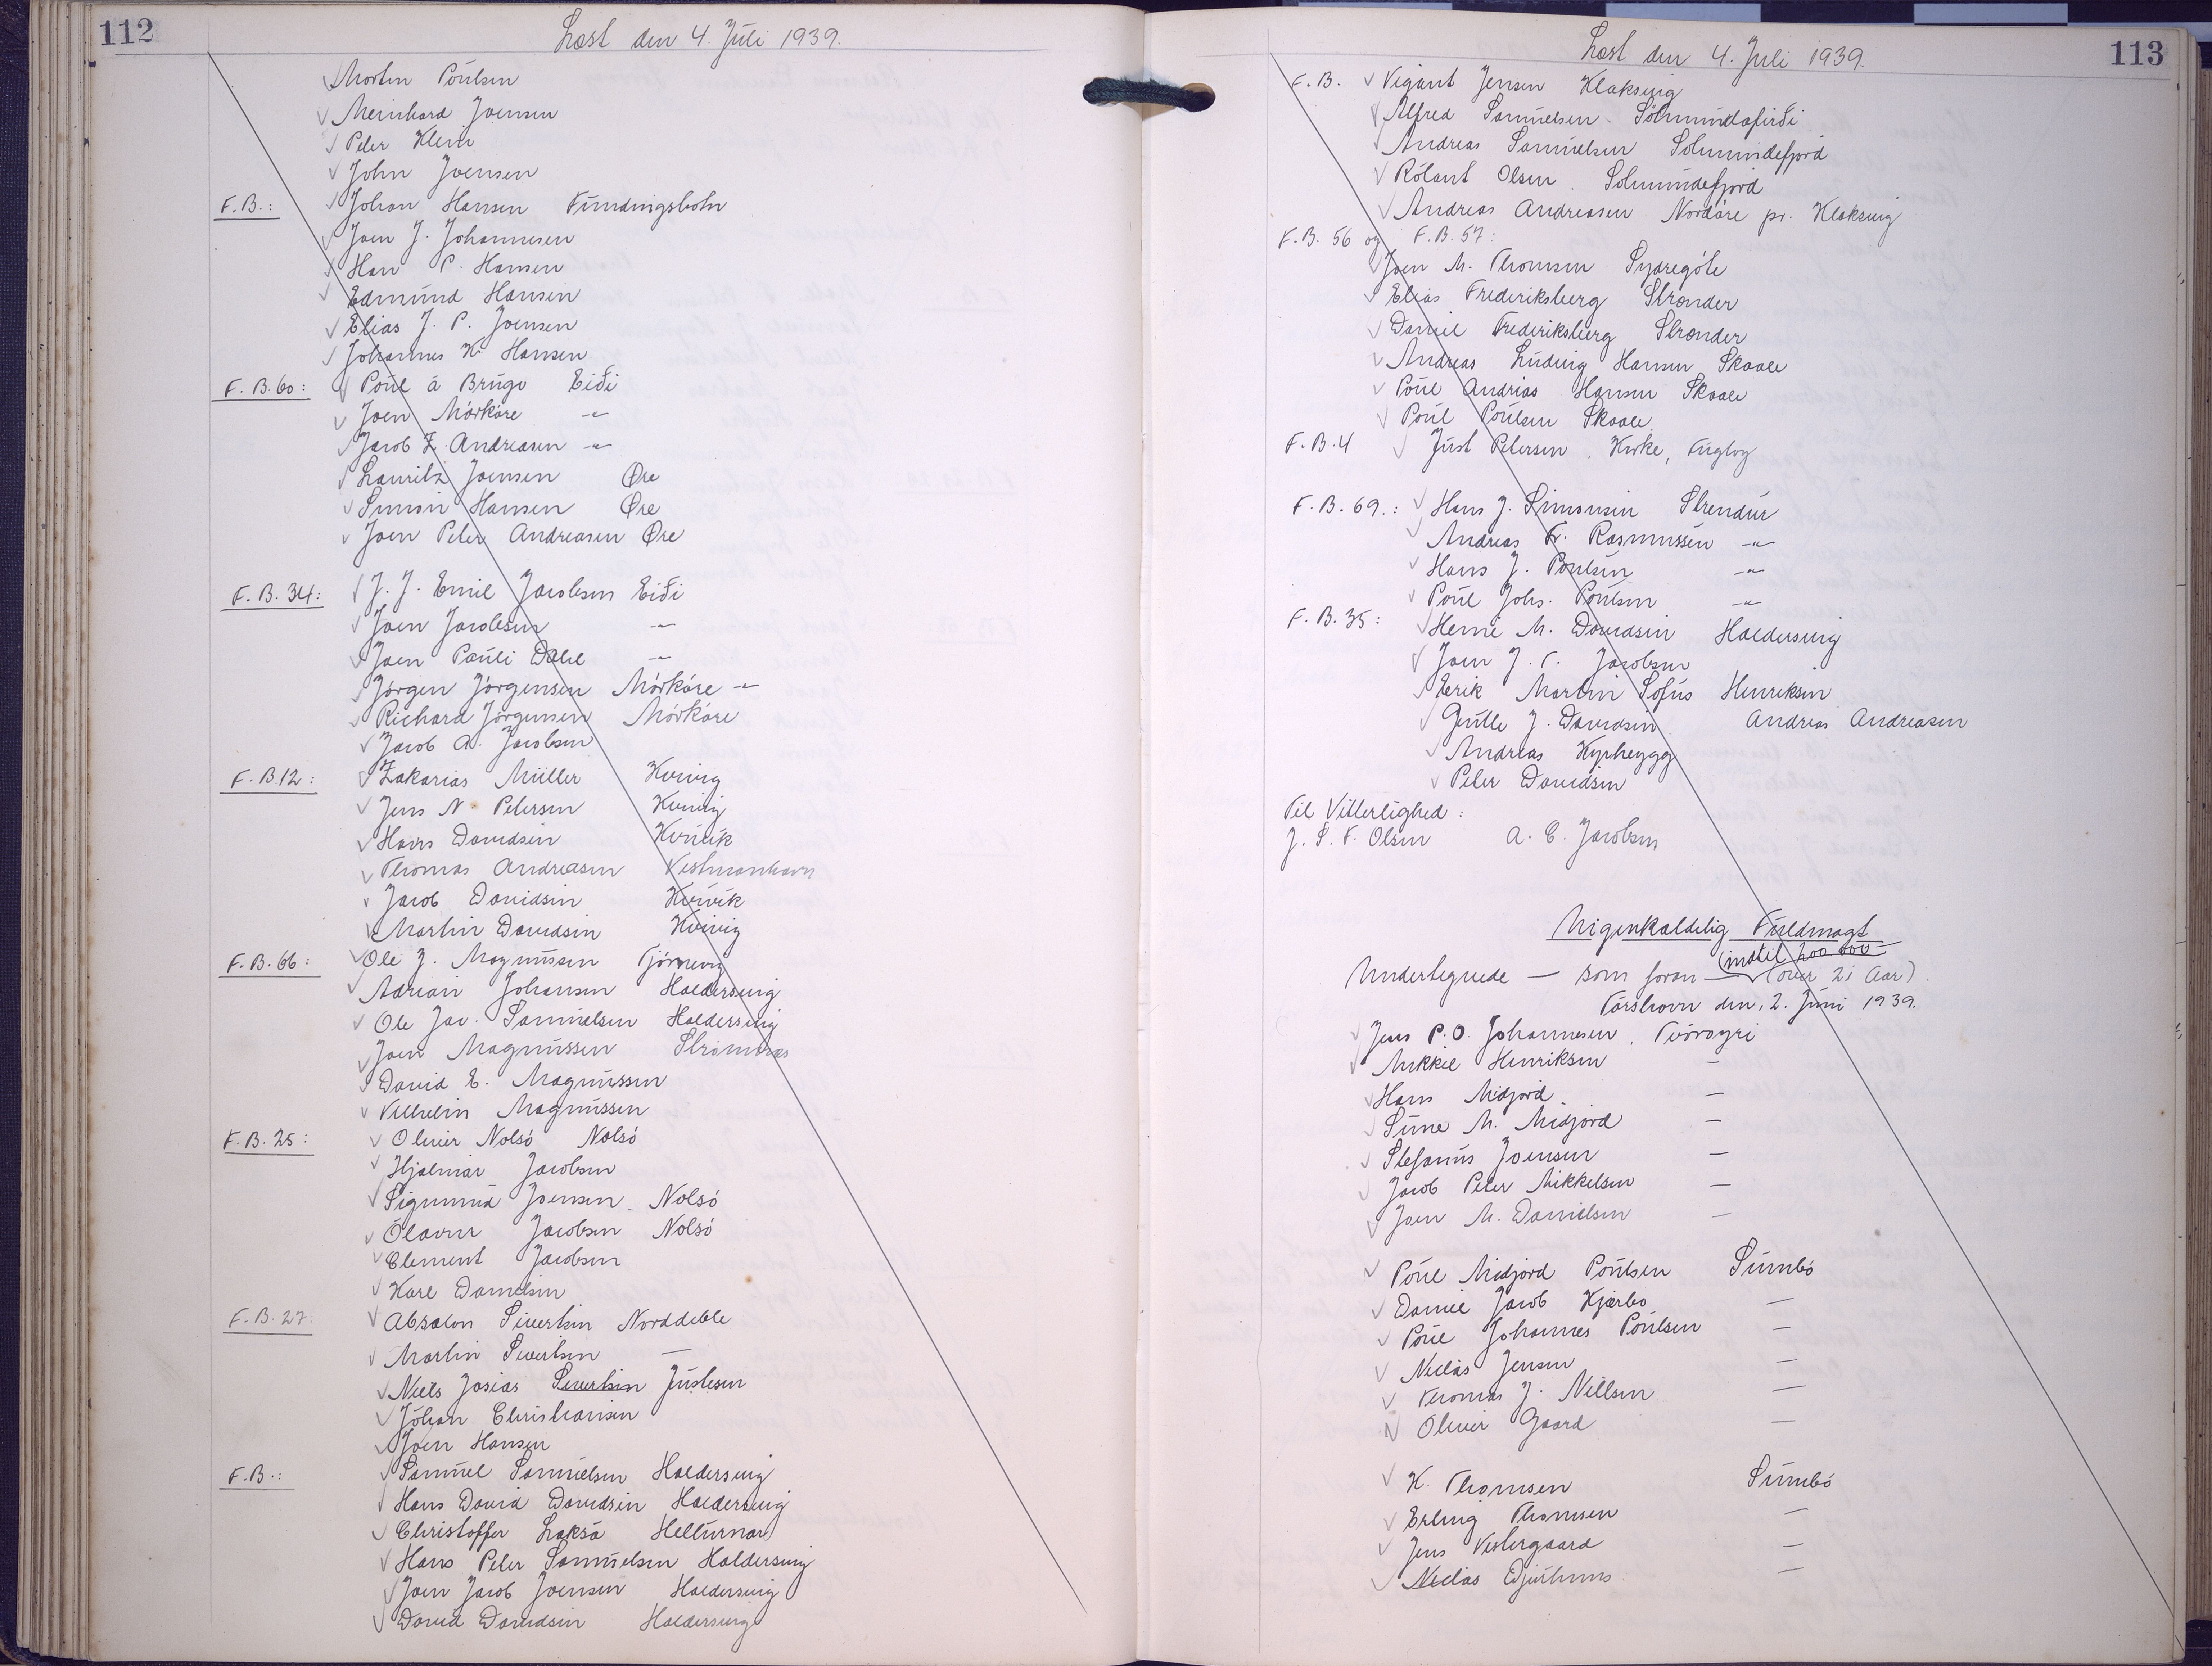 112
Læst den 4. Juli 1939.
Morten Poulsen
Meinhard Joensen
Peter Klein
John Joensen
F.B.: Johan Hansen Fundingsbotn
Joen J. Johannesen
Han P. Hansen
Edmund Hansen
Elias J. P. Joensen
Johannes K. Hansen
F.B. 60: Poul á Brúgv Eiði
Joen Mórkøre -"-
Jacob Z. Andreasen -"-
Lauritz Joensen Øre
Simon Hansen Øre
Joen Peter Andreasen Øre
F.B. 34: J. J. Emil Jacobsen Eiði
Joen Jacobsen -"-
Joen Pauli Dahl -"-
Jörgen Jörgensen Mórköre -"-
Richard Jörgensen Mórköre
Jacob A. Jacobsen
F.B. 12: Zakarias Müller Kvivig
Jens N. Petersen Kvivig
Hans Davidsen Kvívík
Thomas Andreasen Vestmanhavn
Jacob Davidsen Kvívík
Martin Davidsen Kvivig
F.B. 66: Ole J. Magnussen Tjörnevig
Adrian Johansen Haldersvig
Ole Jac. Samuelsen Haldersvig
Joen Magnussen Strömnæs
David E. Magnussen
Vilhelm Magnussen
F.B. 25: Oliver Nolsö Nolsö
Hjalmar Jacobsen
Sigmund Joensen Nolsö
Ólavur Jacobsen Nolsö
Clement Jacobsen
Karl Danielsen
F.B. 27: Absalon Sivertsen Norddeble
Martin Sivertsen —
Niels Josias Sivertsen Justesen
Johan Christiansen
Joen Hansen
F.B.: Samuel Samuelsen Haldersvig
Hans David Davidsen Haldersvig
Christoffer Laksá Hellurnar
Hans Peter Samuelsen Haldersvig
Joen Jacob Joensen Haldersvig
David Davidsen Haldersvig
113
Læst den 4. Juli 1939.
F.B. Vigant Jensen Klaksvig
Alfred Samuelsen Sölmundafirði
Andreas Samuelsen Solmundefjord
Rólant Olsen. Solmundefjord
Andreas Andreasen Nordöre pr. Klaksvig
F.B. 56 og F.B. 57:
Joen M. Thomsen Sydregöte
Elias Frederiksberg Strænder
Daniel Frederiksberg Strænder
Andreas Ludvig Hansen Skaale
Poul Andrias Hansen Skaale
Poul Poulsen Skaale
F.B. 4 Just Petersen, Kirke, Fuglöy
F.B. 69.: Hans J. Simonsen Strendur
Andreas Fr. Rasmussen -"-
Hans J. Poulsen -"-
Poul Johs. Poulsen -"-
F.B. 35: Herni M. Davidsen Haldersvig
Joen J. F. Jacobsen
Erik Martin Sofus Henriksen
Gutte J. Davidsen Andreas Andreasen
Andreas Hypheygg
Peter Davidsen
Til Vitterlighed:
J. S. F. Olsen A. C. Jacobsen
Uigenkaldelig Fuldmagt
(indtil 200 000
Undertegnede — som foran — (over 21 Aar).
Tórshavn den, 2. Juni 1939.
Jens P. O. Johannesen, Tvöroyri
Mikkel Henriksen —
Hans Midjord —
Sune M. Midjord —
Stefanus Joensen —
Jacob Peter Mikkelsen —
Joen M. Danielsen —
Poul Midjord Poulsen Sumbö
Daniel Jacob Kjærbo —
Poul Johannes Poulsen —
Niclas Jensen —
Thomas J. Nielsen —
Oliver Gaard —
K. Thomsen Sumbö
Erling Thomsen —
Jens Vestergaard —
Niclas Djurhuus —